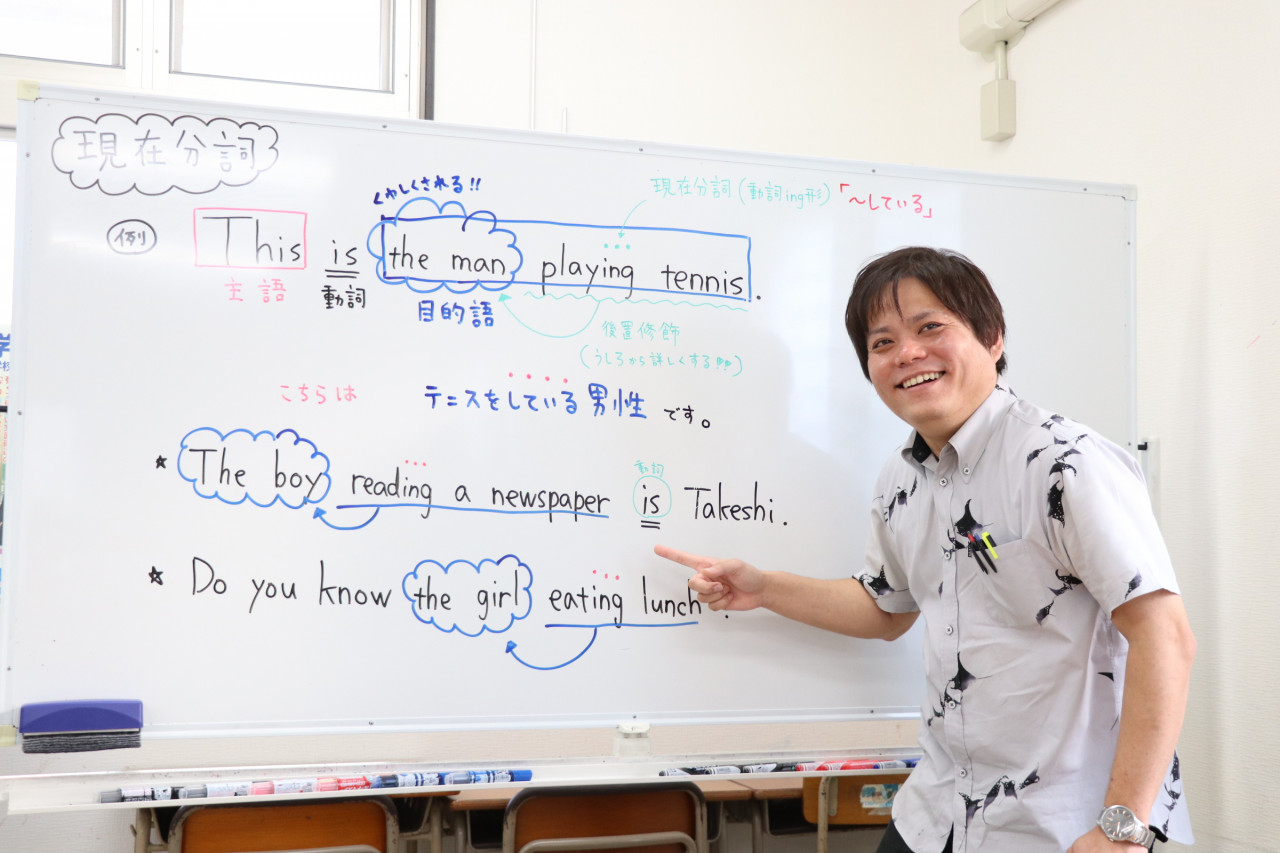 現在分詞
くわしくされる!!
現在分詞(動詞ing形)「~している」
例 This is the man playing tennis.
主語 動詞 目的語
後置修飾
(うしろから詳しくする!!)
こちらは テニスをしている男性 です。
動詞
★ The boy reading a newspaper is Takeshi.
★ Do you know the girl eating lunch .
学
校